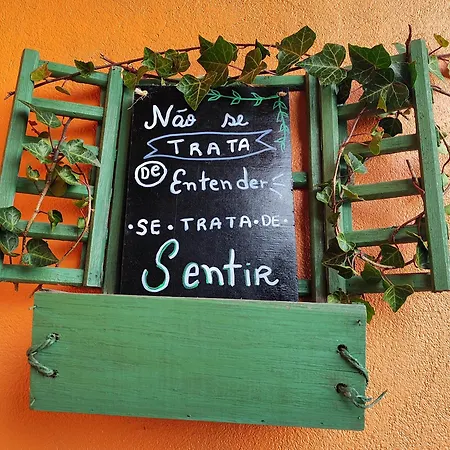 Não se
TRATA
DE Entender
SE·TRATA·DE·
Sentir